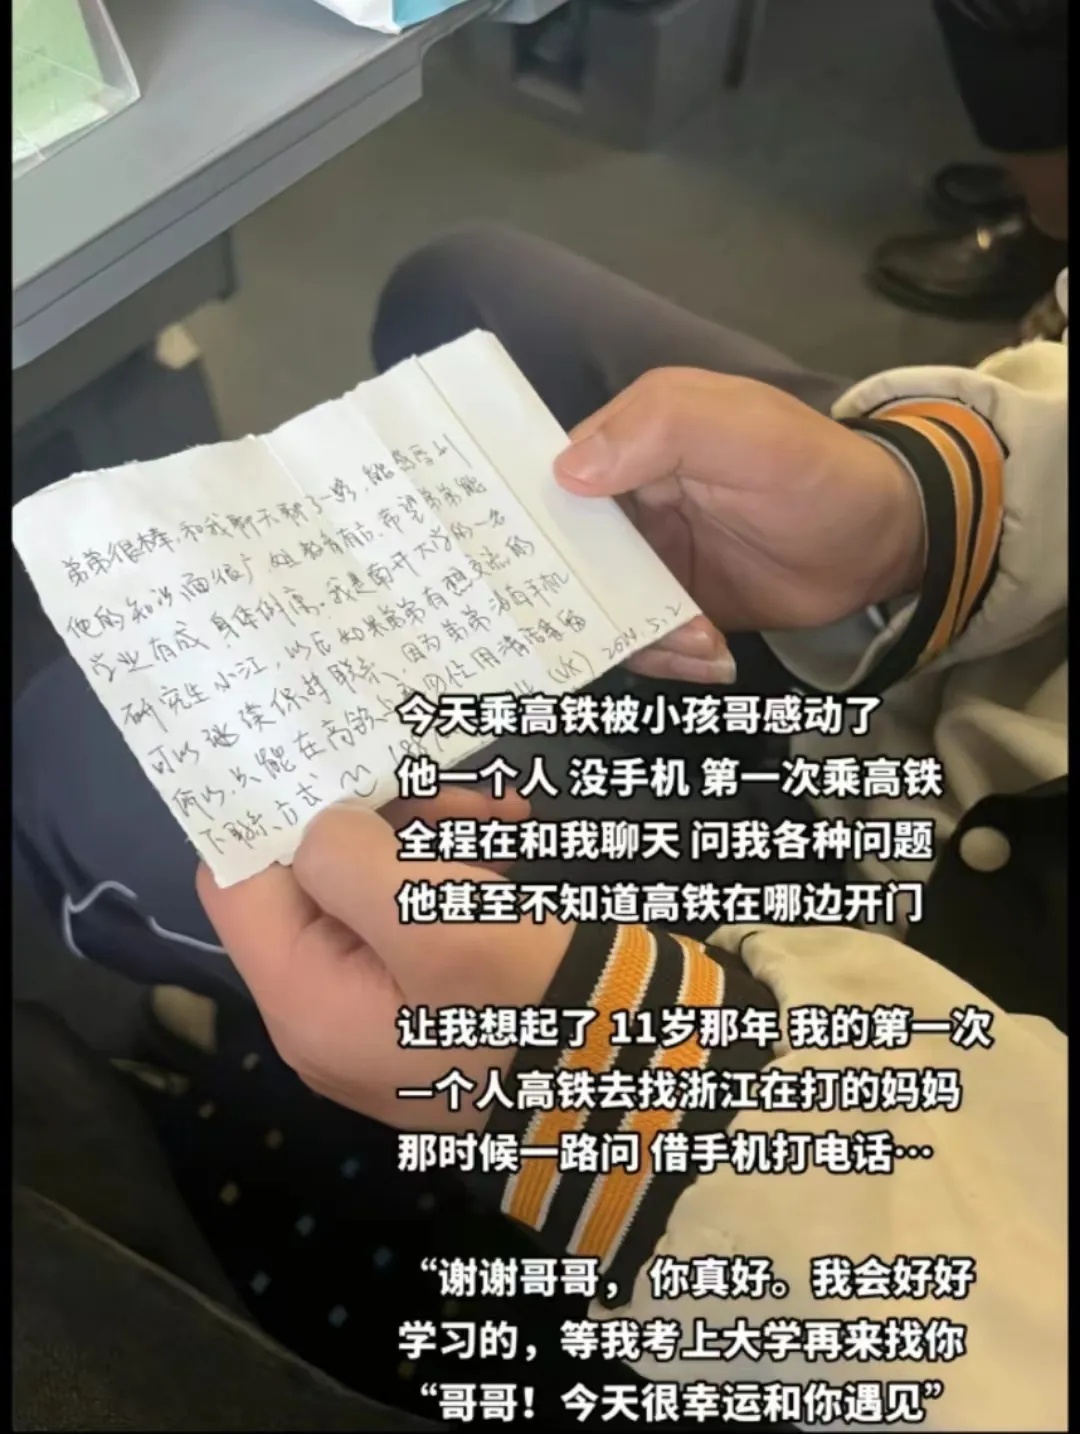 弟弟很棒,和我聊天聊了一路,能感受到
他的知识面很广,姐教育有方.希望弟弟能
学业有成,身体健康.我是南开大学的一名
研究生小江,以后如果弟弟有想交流的
可以继续保持联系、因为弟弟没有手机
所以,只能在高铁上
用清洁袋留
下联系方式
(VX) 2024.5.2
今天乘高铁被小孩哥感动了
他一个人 没手机 第一次乘高铁
全程在和我聊天 问我各种问题
他甚至不知道高铁在哪边开门
让我想起了 11岁那年 我的第一次
一个人高铁去找浙江在打的妈妈
那时候一路问 借手机打电话…
“谢谢哥哥，你真好。我会好好
学习的，等我考上大学再来找你
“哥哥！今天很幸运和你遇见”